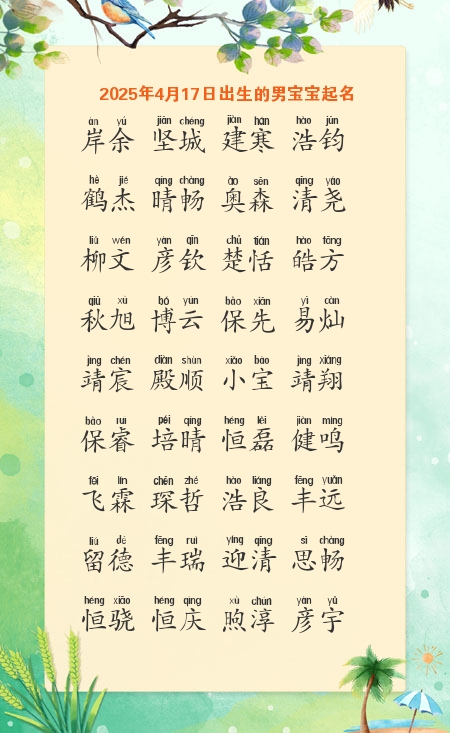 2025年4月17日出生的男宝宝起名
àn yú jiān chéng jiàn hán hào jūn
岸余 坚城 建寒 浩钧
hè jié qíng chàng ào sēn qīng yáo
鹤杰 晴畅 奥森 清尧
liǔ wén yàn qīn chǔ tián hào fāng
柳文 彦钦 楚恬 皓方
qiū xù bó yún bǎo xiān yì càn
秋旭 博云 保先 易灿
jìng chén diàn shùn xiǎo bǎo jìng xiáng
靖宸 殿顺 小宝 靖翔
bǎo ruì péi qíng héng lěi jiàn míng
保睿 培晴 恒磊 健鸣
fēi lín chēn zhé hào liáng fēng yuǎn
飞霖 琛哲 浩良 丰远
liú dé fēng ruì yíng qīng sī chàng
留德 丰瑞 迎清 思畅
héng xiāo héng qìng xù chún yàn yǔ
恒骁 恒庆 煦淳 彦宇